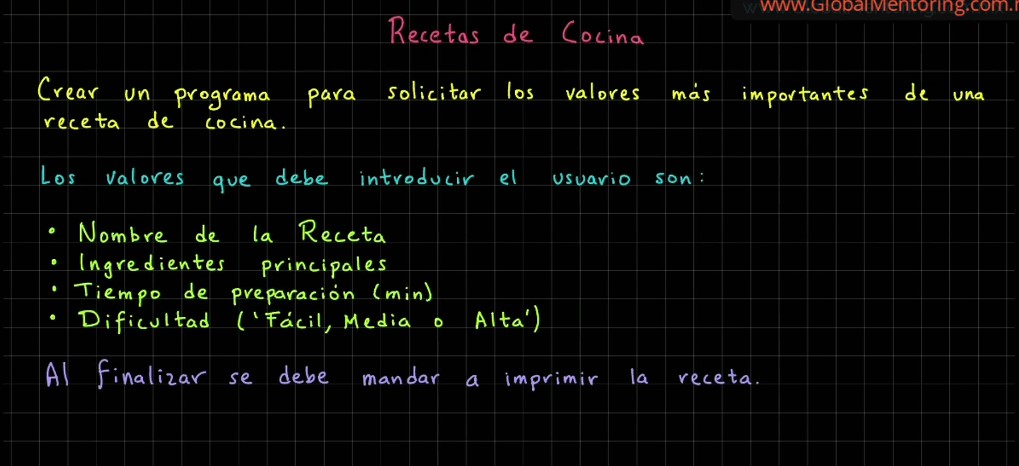 www.GlobalMentoring.com.
Recetas de Cocina
Crear un programa para solicitar los valores más importantes de una
receta de cocina.
Los valores que debe introducir el usuario son:
• Nombre de la Receta
• Ingredientes principales
• Tiempo de preparación (min)
• Dificultad ('Fácil, Media o Alta')
Al finalizar se debe mandar a imprimir la receta.